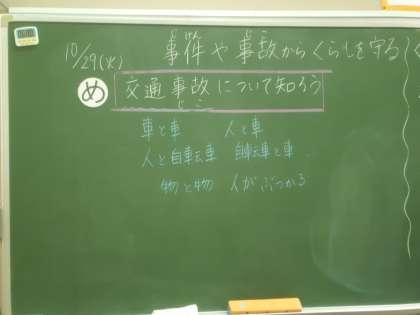 10/29(火) 事件や事故からくらしを守る
め 交通事故について知ろう
じこ
車と車 人と車
人と自転車 自転車と車
物と物 人がぶつかる